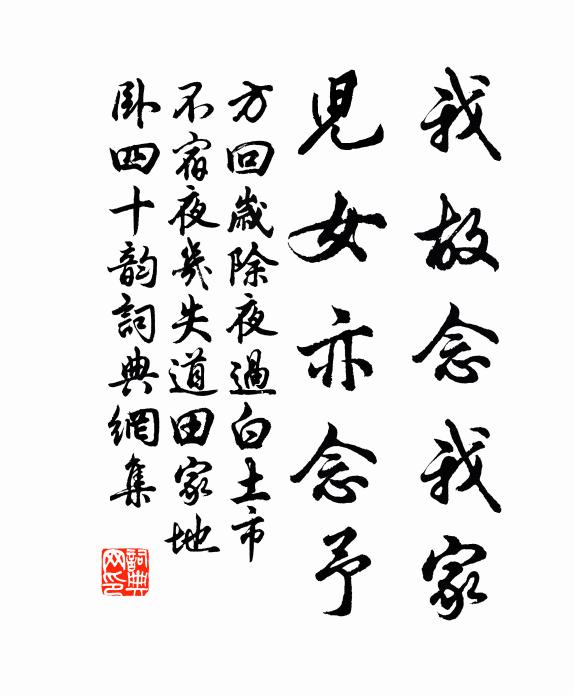 我故念我家
兒女亦念予
方回歲除夜過白土市
不宿夜幾失道田家地
卧四十韵詞典網集
詞典網印